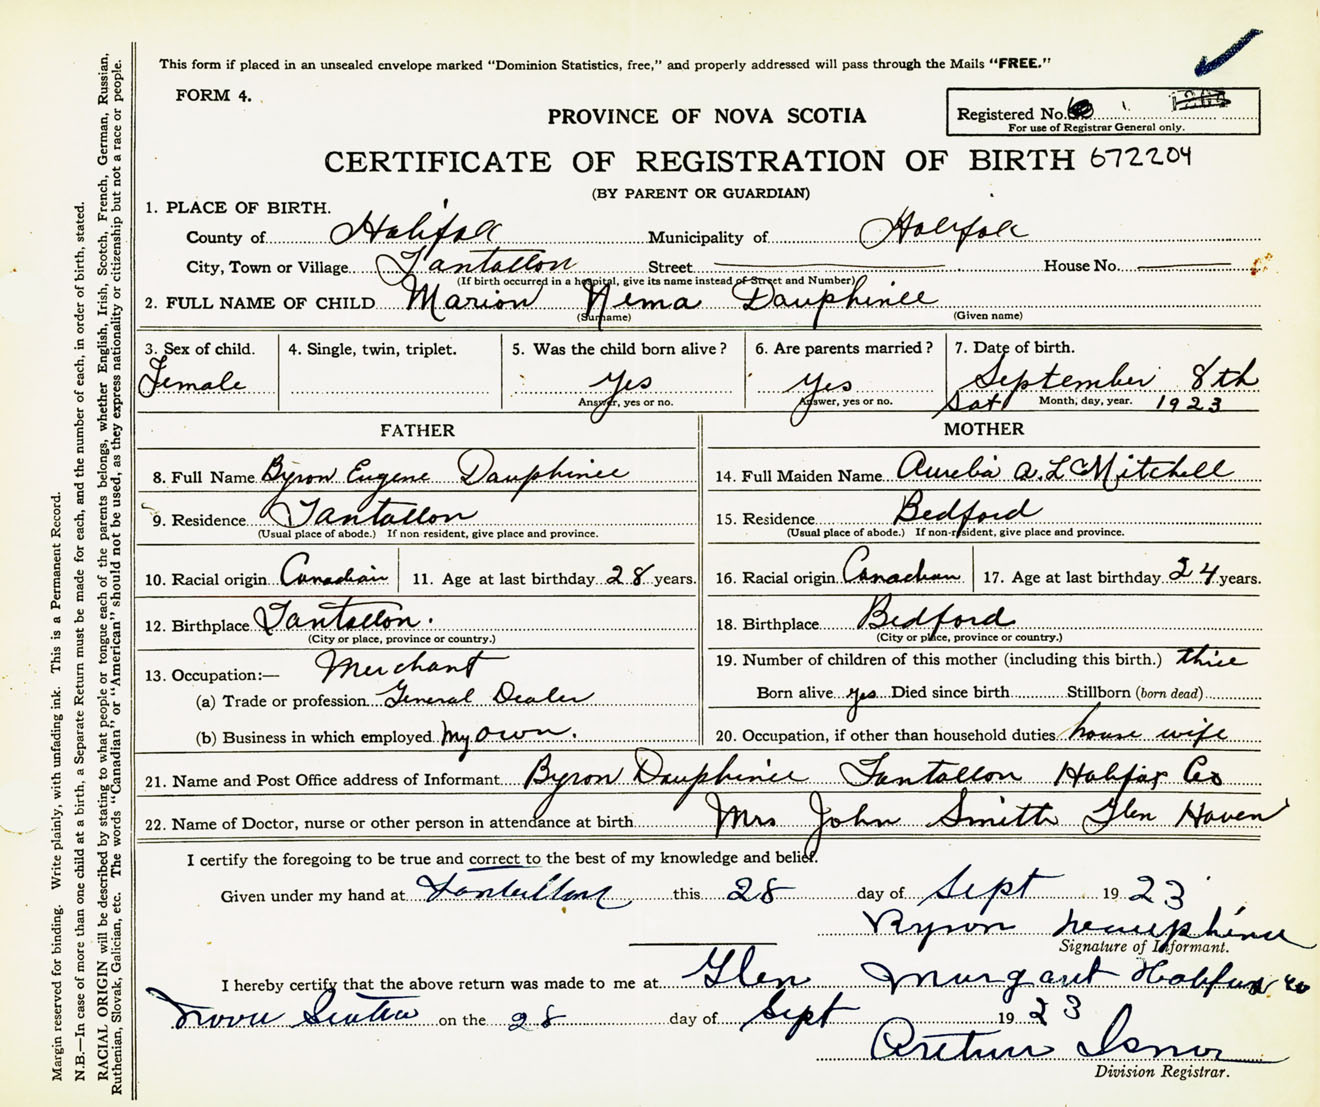 This form if placed in an unsealed envelope marked "Dominion Statistics, free," and properly addressed will pass through the Mails "FREE."
FORM 4.
PROVINCE OF NOVA SCOTIA
Registered No.
For use of Registrar General only.
CERTIFICATE OF REGISTRATION OF BIRTH 672204
(BY PARENT OR GUARDIAN)
1. PLACE OF BIRTH.
County of Halifax Municipality of Halifax
City, Town or Village Tantallon Street House No.
(If birth occurred in a hospital, give its name instead of Street and Number)
2. FULL NAME OF CHILD Marion Nema Dauphinee
(Surname) (Given name)
3. Sex of child. 4. Single, twin, triplet. 5. Was the child born alive? 6. Are parents married? 7. Date of birth.
Female Yes Yes September 8th
Answer, yes or no. Answer, yes or no. Sat Month, day, year. 1923
FATHER MOTHER
8. Full Name Byron Eugene Dauphinee 14. Full Maiden Name Aurelia A. L Mitchell
9. Residence Tantallon 15. Residence Bedford
(Usual place of abode.) If non resident, give place and province. (Usual place of abode.) If non-resident, give place and province.
10. Racial origin Canadian 11. Age at last birthday 28 years. 16. Racial origin Canadian 17. Age at last birthday 24 years.
12. Birthplace Tantallon. 18. Birthplace Bedford
(City or place, province or country.) (City or place, province or country.)
13. Occupation:— Merchant 19. Number of children of this mother (including this birth.) thrie
(a) Trade or profession General Dealer Born alive yes Died since birth Stillborn (born dead)
(b) Business in which employed My own. 20. Occupation, if other than household duties house wife
21. Name and Post Office address of Informant Byron Dauphinee Tantallon Halifax Co
22. Name of Doctor, nurse or other person in attendance at birth Mrs John Smith Glen Haven
I certify the foregoing to be true and correct to the best of my knowledge and belief.
Given under my hand at Tantallon this 28 day of Sept 1923
Byron Dauphinee
Signature of Informant.
I hereby certify that the above return was made to me at Glen Margaret Halifax Co
Nova Scotia on the 28 day of Sept 1923
Arthur Isnor
Division Registrar.
Margin reserved for binding. Write plainly, with unfading ink. This is a Permanent Record.
N.B.—In case of more than one child at a birth, a Separate Return must be made for each, and the number of each, in order of birth, stated.
RACIAL ORIGIN will be described by stating to what people or tongue each of the parents belongs, whether English, Irish, Scotch, French, German, Russian,
Ruthenian, Slovak, Galician, etc. The words "Canadian" or "American" should not be used, as they express nationality or citizenship but not a race or people.